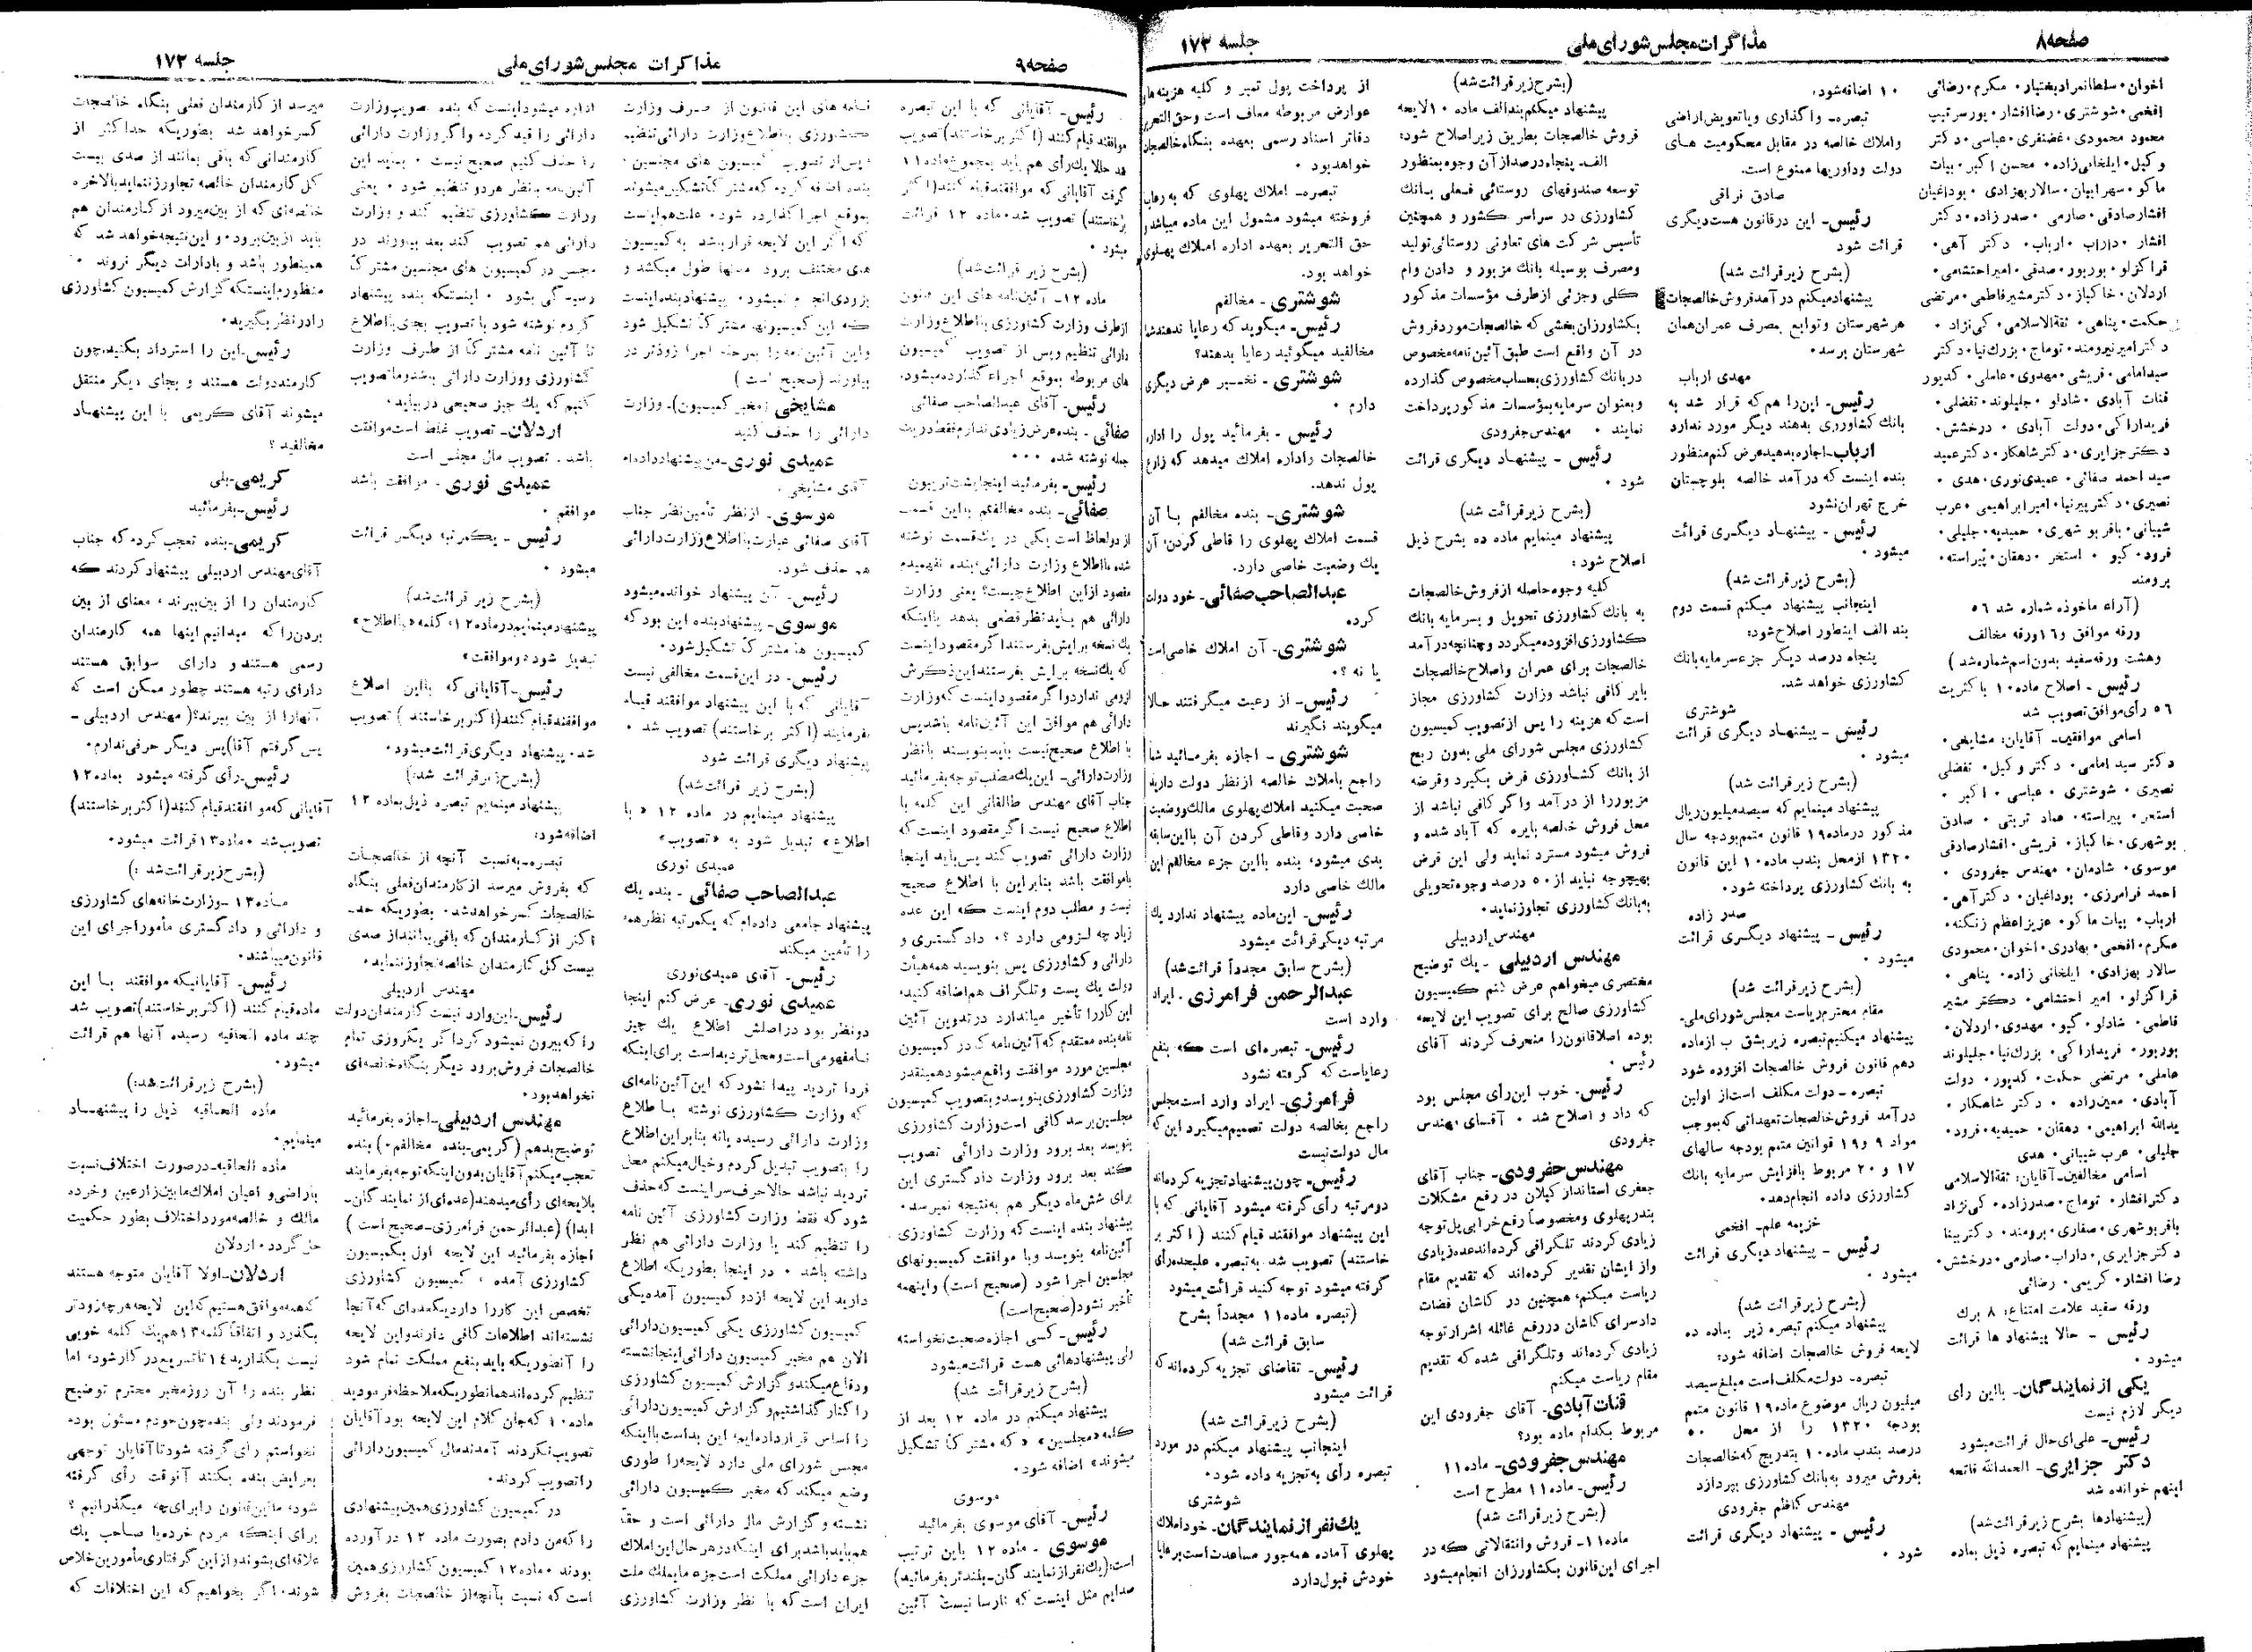 صفحه ۸
مذاکرات مجلس شورای ملی
جلسه ۱۷۳
اخوان۰ سلطانمراد بختیار۰ مکرم۰ رضائی
افخمی۰ شوشتری۰ رضا افشار۰ پورسرتیپ
محمود محمودی۰ غضنفری۰ عباسی۰ دکتر
وکیل۰ ایلخانی‌زاده۰ محسن اکبر۰ بیات
ماکو۰ سهرابیان۰ سالار بهزادی۰ بوداغیان
افشار صادقی۰ صارمی۰ صدرزاده۰ دکتر
افشار۰ داراب۰ ارباب۰ دکتر آهی۰
قراگزلو۰ بوربور۰ صدقی۰ امیر احتشامی۰
اردلان۰ خاکباز۰ دکتر مشیر فاطمی۰ مرتضی
حکمت۰ پناهی۰ ثقةالاسلامی۰ کی‌نژاد۰
دکتر امیر نیرومند۰ توماج۰ بزرگ‌نیا۰ دکتر
سید امامی۰ قریشی۰ مهدوی۰ عاملی۰ کدیور
قنات آبادی۰ شادلو۰ جلیلوند۰ تفضلی۰
فریداراکی۰ دولت آبادی۰ درخشش۰
دکتر جزایری۰ دکتر شاهکار۰ دکتر عمید
سید احمد صفائی۰ عمیدی نوری۰ هدی۰
نصیری۰ دکتر پیرنیا۰ امیر ابراهیمی۰ عرب
شیبانی۰ باقر بوشهری۰ حمیدیه۰ جلیلی۰
فرود۰ کیو۰ استخر۰ دهقان۰ پیراسته۰
برومند
(آراء ماخوذه شماره شد ۵۶
ورقه موافق و۱۶ ورقه مخالف
وهشت ورقه سفید بدون اسم شماره شد)
رئیس - اصلاح ماده ۱۰ باکثریت
۵۶ رأی موافق تصویب شد
اسامی موافقین- آقایان: مشایخی۰
دکتر سید امامی۰ دکتر وکیل۰ تفضلی
نصیری۰ شوشتری۰ عباسی۰ اکبر۰
استخر۰ پیراسته۰ عماد تربتی۰ صادق
بوشهری۰ خاکباز۰ قریشی۰ افشار صادقی
موسوی۰ شادمان۰ مهندس جفرودی۰
احمد فرامرزی۰ بوداغیان۰ دکتر آهی۰
ارباب۰ بیات ماکو۰ عزیز اعظم زنگنه۰
مکرم۰ افخمی۰ بهادری۰ اخوان۰ محمودی
سالار بهزادی۰ ایلخانی زاده۰ پناهی۰
قراگزلو۰ امیر احتشامی۰ دکتر مشیر
فاطمی۰ شادلو۰ کیو۰ مهدوی۰ اردلان۰
بوربور۰ فریداراکی۰ بزرگ‌نیا۰ جلیلوند
عاملی۰ مرتضی حکمت۰ کدیور۰ دولت
آبادی۰ معین‌زاده۰ دکتر شاهکار۰
یدالله ابراهیمی۰ دهقان۰ حمیدیه۰ فرود۰
جلیلی۰ عرب شیبانی۰ هدی
اسامی مخالفین- آقایان: ثقةالاسلامی
دکتر افشار۰ توماج۰ صدرزاده۰ کی‌نژاد
باقر بوشهری۰ صفاری۰ برومند۰ دکتر بینا
دکتر جزایری۰ داراب۰ صارمی۰ درخشش۰
رضا افشار۰ کریمی۰ رضائی
ورقه سفید علامت امتناع: ۸ برک
رئیس - حالا پیشنهاد ها قرائت
میشود۰
یکی از نمایندگان- بااین رأی
دیگر لازم نیست
رئیس- علی‌ای‌حال قرائت میشود
دکتر جزایری- الحمدالله فاتحه
اینهم خوانده شد
(پیشنهادها بشرح زیر قرائت شد)
پیشنهاد مینمایم که تبصره ذیل بماده
۱۰ اضافه شود:
تبصره- واگذاری و یا تعویض اراضی
و املاک خالصه در مقابل محکومیت های
دولت و داوریها ممنوع است.
صادق نراقی
رئیس- این در قانون هست دیگری
قرائت شود
(بشرح زیر قرائت شد)
پیشنهاد میکنم درآمد فروش خالصجات
هر شهرستان و توابع بمصرف عمران همان
شهرستان برسد۰
مهدی ارباب
رئیس- این را هم که قرار شد به
بانک کشاورزی بدهند دیگر مورد ندارد
ارباب- اجازه بدهید عرض کنم منظور
بنده اینست که درآمد خالصه بلوچستان
خرج تهران نشود
رئیس - پیشنهاد دیگری قرائت
میشود۰
(بشرح زیر قرائت شد)
اینجانب پیشنهاد میکنم قسمت دوم
بند الف اینطور اصلاح شود:
پنجاه درصد دیگر جزء سرمایه بانک
کشاورزی خواهد شد.
شوشتری
رئیس - پیشنهاد دیگری قرائت
میشود۰
(بشرح زیر قرائت شد)
پیشنهاد مینمایم که سیصد میلیون ریال
مذکور در ماده ۱۹ قانون متمم بودجه سال
۱۳۲۰ از محل بند ب ماده ۱۰ این قانون
به بانک کشاورزی پرداخته شود۰
صدر زاده
رئیس - پیشنهاد دیگری قرائت
میشود۰
(بشرح زیر قرائت شد)
مقام محترم ریاست مجلس شورای ملی-
پیشنهاد میکنیم تبصره زیر بشق ب از ماده
دهم قانون فروش خالصجات افزوده شود
تبصره - دولت مکلف است از اولین
درآمد فروش خالصجات تعهداتی که بموجب
مواد ۹ و ۱۹ قوانین متمم بودجه سالهای
۱۷ و ۲۰ مربوط بافزایش سرمایه بانک
کشاورزی داده انجام دهد۰
خزیمه علم- افخمی
رئیس - پیشنهاد دیگری قرائت
میشود۰
(بشرح زیر قرائت شد)
پیشنهاد میکنم تبصره زیر بماده ده
لایحه فروش خالصجات اضافه شود:
تبصره- دولت مکلف است مبلغ سیصد
میلیون ریال موضوع ماده ۱۹ قانون متمم
بودجه ۱۳۲۰ را از محل ۵۰
درصد بند ب ماده ۱۰ بتدریج که خالصجات
بفروش میرود به بانک کشاورزی بپردازد
مهندس کاظم جفرودی
رئیس - پیشنهاد دیگری قرائت
شود۰
(بشرح زیر قرائت شد)
پیشنهاد میکنم بند الف ماده ۱۰ لایحه
فروش خالصجات بطریق زیر اصلاح شود:
الف- پنجاه درصد از آن وجوه بمنظور
توسعه صندوقهای روستائی فعلی بانک
کشاورزی در سراسر کشور و همچنین
تأسیس شرکت های تعاونی روستائی تولید
و مصرف بوسیله بانک مزبور و دادن وام
کلی و جزئی از طرف مؤسسات مذکور
بکشاورزان بخشی که خالصجات مورد فروش
در آن واقع است طبق آئین‌نامه مخصوص
در بانک کشاورزی بحساب مخصوص گذارده
و بعنوان سرمایه بمؤسسات مذکور پرداخت
نمایند۰ مهندس جفرودی
رئیس - پیشنهاد دیگری قرائت
شود۰
(بشرح زیر قرائت شد)
پیشنهاد مینمایم ماده ده بشرح ذیل
اصلاح شود:
کلیه وجوه حاصله از فروش خالصجات
به بانک کشاورزی تحویل و بسرمایه بانک
کشاورزی افزوده میگردد و چنانچه درآمد
خالصجات برای عمران و اصلاح خالصجات
بایر کافی نباشد وزارت کشاورزی مجاز
است که هزینه را پس از تصویب کمیسیون
کشاورزی مجلس شورای ملی بدون ربح
از بانک کشاورزی قرض بگیرد و قرضه
مزبور را از درآمد و اگر کافی نباشد از
محل فروش خالصه بایره که آباد شده و
فروش میشود مسترد نماید ولی این قرض
بهیچوجه نباید از ۵۰ درصد وجوه تحویلی
به بانک کشاورزی تجاوز نماید۰
مهندس اردبیلی
مهندس اردبیلی - یک توضیح
مختصری میخواهم عرض کنم کمیسیون
کشاورزی صالح برای تصویب این لایحه
بوده اصلا قانون را منحرف کردند آقای
رئیس۰
رئیس- خوب این رأی مجلس بود
که داد و اصلاح شد۰ آقای مهندس
جفرودی
مهندس جفرودی- جناب آقای
جعفری استاندار گیلان در رفع مشکلات
بندر پهلوی و مخصوصاً رفع خرابی پل توجه
زیادی کردند تلگرافی کرده‌اند عده زیادی
و از ایشان تقدیر کرده‌اند که تقدیم مقام
ریاست میکنم، همچنین در کاشان قضات
دادسرای کاشان در رفع غائله اشرار توجه
زیادی کرده‌اند و تلگرافی شده که تقدیم
مقام ریاست میکنم
قنات آبادی- آقای جفرودی این
مربوط بکدام ماده بود؟
مهندس جفرودی- ماده ۱۱
رئیس- ماده ۱۱ مطرح است
(بشرح زیر قرائت شد)
ماده ۱۱- فروش و انتقالاتی که در
اجرای این قانون بکشاورزان انجام میشود
از پرداخت پول تمبر و کلیه هزینه‌های
عوارض مربوطه معاف است و حق التحریر
دفاتر اسناد رسمی بعهده بنگاه خالصجات
خواهد بود۰
تبصره- املاک پهلوی که به رعایا
فروخته میشود مشمول این ماده میباشد و
حق التحریر بعهده اداره املاک پهلوی
خواهد بود.
شوشتری - مخالفم
رئیس- میگوید که رعایا ندهند شما
مخالفید میگوئید رعایا بدهند؟
شوشتری - نخیر عرض دیگری
دارم۰
رئیس - بفرمائید پول را اداره
خالصجات و اداره املاک میدهد که زارع
پول ندهد.
شوشتری- بنده مخالفم با آن
قسمت املاک پهلوی را قاطی کردن، آن
یک وضعیت خاصی دارد.
عبدالصاحب صفائی- خود دولت
کرده
شوشتری- آن املاک خاصی است
یا نه؟۰
رئیس- از رعیت میگرفتند حالا
میگویند نگیرند
شوشتری - اجازه بفرمائید شما
راجع باملاک خالصه از نظر دولت دارید
صحبت میکنید املاک پهلوی مالک و وضعیت
خاصی دارد و قاطی کردن آن بااین سابقه
بدی میشود، بنده بااین جزء مخالفم این
مالک خاصی دارد
رئیس- این ماده پیشنهاد ندارد یک
مرتبه دیگر قرائت میشود
(بشرح سابق مجدداً قرائت شد)
عبدالرحمن فرامرزی- ایراد
وارد است
رئیس- تبصره‌ای است که بنفع
رعایاست که گرفته نشود
فرامرزی- ایراد وارد است مجلس
راجع بخالصه دولت تصمیم میگیرد این که
مال دولت نیست
رئیس- چون پیشنهاد تجزیه کرده‌اند
دو مرتبه رأی گرفته میشود آقایانی که با
این پیشنهاد موافقند قیام کنند (اکثر بر
خاستند) تصویب شد به تبصره علیحده رأی
گرفته میشود توجه کنید قرائت میشود
(تبصره ماده ۱۱ مجدداً بشرح
سابق قرائت شد)
رئیس- تقاضای تجزیه کرده‌اند که
قرائت میشود
(بشرح زیر قرائت شد)
اینجانب پیشنهاد میکنم در مورد
تبصره رأی به تجزیه داده شود۰
شوشتری
یک نفر از نمایندگان- خود املاک
پهلوی آماده همه‌جور مساعدت است برعایا
خودش قبول دارد
صفحه ۹
مذاکرات مجلس شورای ملی
جلسه ۱۷۳
رئیس- آقایانی که با این تبصره
موافقند قیام کنند (اکثر برخاستند) تصویب
شد حالا یک رأی هم باید بمجموع ماده ۱۱
گرفت آقایانی که موافقند قیام کنند (اکثر
برخاستند) تصویب شد۰ ماده ۱۲ قرائت
میشود۰
(بشرح زیر قرائت شد)
ماده ۱۲- آئین‌نامه های این قانون
از طرف وزارت کشاورزی با اطلاع وزارت
دارائی تنظیم و پس از تصویب کمیسیون
های مربوطه بموقع اجراء گذارده میشود.
رئیس- آقای عبدالصاحب صفائی
صفائی- بنده عرض زیادی ندارم فقط در یک
جمله نوشته شده ۰۰۰
رئیس- بفرمائید اینجا پشت تریبون
صفائی- بنده مخالفم باین قسمت
از دو لحاظ است یکی در یک قسمت نوشته
شده با اطلاع وزارت دارائی، بنده نفهمیدم
مقصود از این اطلاع چیست؟ یعنی وزارت
دارائی هم باید نظر قطعی بدهد یا اینکه
یک نسخه برایش بفرستند اگر مقصود اینست
که یک نسخه برایش بفرستند این ذکرش
لزومی ندارد و اگر مقصود اینست که وزارت
دارائی هم موافق این آئین‌نامه باشد پس
با اطلاع صحیح نیست باید بنویسند با نظر
وزارت دارائی- این یک مطلب توجه بفرمائید
جناب آقای مهندس طالقانی این کلمه با
اطلاع صحیح نیست اگر مقصود اینست که
وزارت دارائی تصویب کند پس باید اینجا
با موافقت باشد بنابراین با اطلاع صحیح
نیست و مطلب دوم اینست که این عده
زیاد چه لزومی دارد؟۰ دادگستری و
دارائی و کشاورزی پس بنویسید همه هیأت
دولت یک پست و تلگراف هم اضافه کنید،
این کار را تأخیر میاندازد در تدوین آئین
نامه بنده معتقدم که آئین‌نامه که در کمیسیون
مجلسین مورد موافقت واقع میشود همینقدر
وزارت کشاورزی بنویسد و بتصویب کمیسیون
مجلسین برسد کافی است وزارت کشاورزی
بنویسد بعد برود وزارت دارائی تصویب
کند بعد برود وزارت دادگستری این
برای شش ماه دیگر هم به نتیجه نمیرسد۰
پیشنهاد بنده اینست که وزارت کشاورزی
آئین‌نامه بنویسد و با موافقت کمیسیونهای
مجلسین اجرا شود (صحیح است) و اینهمه
تأخیر نشود (صحیح است)
رئیس- کسی اجازه صحبت نخواسته
ولی پیشنهادهائی هست قرائت میشود
(بشرح زیر قرائت شد)
پیشنهاد میکنم در ماده ۱۲ بعد از
کلمه «مجلسین» «که مشترکاً تشکیل
میشوند» اضافه شود۰
موسوی
رئیس- آقای موسوی بفرمائید
موسوی - ماده ۱۲ باین ترتیب
است: (یک نفر از نمایندگان- بلندتر بفرمائید)
صدایم مثل اینست که نارسا نیست آئین
نامه های این قانون از طرف وزارت
کشاورزی با اطلاع وزارت دارائی تنظیم
و پس از تصویب کمیسیون های مجلسین۰
بنده اضافه کردم که مشترکاً تشکیل میشوند
بموقع اجرا گذارده شود۰ علت هم اینست
که اگر این لایحه قرار باشد به کمیسیون
های مختلف برود مدتها طول میکشد و
بزودی انجام نمیشود۰ پیشنهاد بنده اینست
که این کمیسیونها مشترکاً تشکیل شود
و این آئین‌نامه را بمرحله اجرا زودتر در
بیاورند (صحیح است)
مشایخی (مخبر کمیسیون)- وزارت
دارائی را حذف کنید
عمیدی نوری- من پیشنهاد داده‌ام
آقای مشایخی۰
موسوی- از نظر تأمین نظر جناب
آقای صفائی عبارت با اطلاع وزارت دارائی
هم حذف شود.
رئیس- آن پیشنهاد خوانده میشود
موسوی- پیشنهاد بنده این بود که
کمیسیون ها مشترکاً تشکیل شود۰
رئیس- در این قسمت مخالفی نیست
آقایانی که با این پیشنهاد موافقند قیام
بفرمایند (اکثر برخاستند) تصویب شد۰
پیشنهاد دیگری قرائت شود
(بشرح زیر قرائت شد)
پیشنهاد مینمایم در ماده ۱۲ «با
اطلاع» تبدیل شود به «تصویب»
عمیدی نوری
عبدالصاحب صفائی - بنده یک
پیشنهاد جامعی داده‌ام که یکمرتبه نظر همه
را تأمین میکند
رئیس- آقای عمیدی نوری
عمیدی نوری- عرض کنم اینجا
دو نظر بود در اصلش اطلاع یک چیز
نامفهومی است و محل تردید است برای اینکه
فردا تردید پیدا نشود که این آئین‌نامه‌ای
که وزارت کشاورزی نوشته باطلاع
وزارت دارائی رسیده یا نه بنابراین اطلاع
را بتصویب تبدیل کردم و خیال میکنم محل
تردید نباشد حالا حرف سر اینست که حذف
شود که فقط وزارت کشاورزی آئین نامه
را تنظیم کند یا وزارت دارائی هم نظر
داشته باشد۰ در اینجا بطوریکه اطلاع
دارید این لایحه از دو کمیسیون آمده یکی
کمیسیون کشاورزی یکی کمیسیون دارائی
الان هم مخبر کمیسیون دارائی اینجا نشسته
و دفاع میکند و گزارش کمیسیون کشاورزی
را کنار گذاشتیم و گزارش کمیسیون دارائی
را اساس قرار داده‌ایم، این بداست با اینکه
مجلس شورای ملی دارد لایحه را طوری
وضع میکند که مخبر کمیسیون دارائی
نشسته و گزارش مال دارائی است و حق
هم باید باشد برای اینکه در هر حال این املاک
جزء دارائی مملکت است جزء مایملک ملت
ایران است که با نظر وزارت کشاورزی
اداره میشود اینست که بنده تصویب وزارت
دارائی را قید کرده و اگر وزارت دارائی
را حذف کنیم صحیح نیست۰ بیاید این
آئین‌نامه با نظر هر دو تنظیم شود۰ یعنی
وزارت کشاورزی تنظیم کند و وزارت
دارائی هم تصویب کند بعد بیاورند در
مجلس در کمیسیون های مجلسین مشترکاً
رسیدگی بشود۰ اینستکه بنده پیشنهاد
کردم نوشته شود با تصویب بجای با اطلاع
تا آئین نامه مشترکاً از طرف وزارت
کشاورزی و وزارت دارائی باشد و ما تصویب
کنیم که یک چیز صحیحی در بیاید۰
اردلان- تصویب غلط است موافقت
باشد۰ تصویب مال مجلس است
عمیدی نوری- موافقت باشد
موافقم۰
رئیس - یکمرتبه دیگر قرائت
میشود۰
(بشرح زیر قرائت شد)
پیشنهاد مینمایم در ماده ۱۲، کلمه «با اطلاع»
تبدیل شود «و موافقت»
رئیس- آقایانی که بااین اصلاح
موافقند قیام کنند (اکثر برخاستند) تصویب
شد۰ پیشنهاد دیگری قرائت میشود۰
(بشرح زیر قرائت شد:)
پیشنهاد مینمایم تبصره ذیل بماده ۱۲
اضافه شود:
تبصره- به نسبت آنچه از خالصجات
که بفروش میرسد از کارمندان فعلی بنگاه
خالصجات کسر خواهد شد۰ بطوریکه حد-
اکثر از کارمندان که باقی بمانند از صدی
بیست کل کارمندان خالصه تجاوز ننماید۰
مهندس اردبیلی
رئیس- این وارد نیست کارمندان دولت
را که بیرون نمیشود کرد اگر یکروزی تمام
خالصجات فروش برود دیگر بنگاه خالصه‌ای
نخواهد بود۰
مهندس اردبیلی- اجازه بفرمائید
توضیح بدهم (کریمی- بنده مخالفم۰) بنده
تعجب میکنم آقایان بدون اینکه توجه بفرمایند
بلایحه‌ای رأی میدهند (عده‌ای از نمایندگان-
ابدا) (عبدالرحمن فرامرزی- صحیح است)
اجازه بفرمائید این لایحه اول بکمیسیون
کشاورزی آمده، کمیسیون کشاورزی
تخصص این کار را دارد یکعده‌ای که آنجا
نشسته‌اند اطلاعات کافی دارند و این لایحه
را آنطوریکه باید بنفع مملکت تمام شود
تنظیم کرده‌اند همانطوریکه ملاحظه فرمودید
ماده ۱۰ که جان کلام این لایحه بود آقایان
تصویب نکردند آمدند مال کمیسیون دارائی
را تصویب کردند۰
در کمیسیون کشاورزی همین پیشنهادی
را که من دادم بصورت ماده ۱۲ درآورده
بودند۰ ماده ۱۲ کمیسیون کشاورزی همین
است که نسبت بآنچه از خالصجات بفروش
میرسد از کارمندان فعلی بنگاه خالصجات
کسر خواهد شد بطوریکه حداکثر از
کارمندانی که باقی بمانند از صدی بیست
کل کارمندان خالصه تجاوز ننماید بالاخره
خالصه‌ای که از بین میرود از کارمندان هم
باید از بین برود۰ و این نتیجه خواهد شد که
همینطور باشد و بادارات دیگر نروند۰
منظورم اینستکه گزارش کمیسیون کشاورزی
را در نظر بگیرید۰
رئیس- این را استرداد بکنید، چون
کارمند دولت هستند و بجای دیگر منتقل
میشوند آقای کریمی با این پیشنهاد
مخالفید؟
کریمی- بلی
رئیس- بفرمائید
کریمی- بنده تعجب کردم که جناب
آقای مهندس اردبیلی پیشنهاد کردند که
کارمندان را از بین ببرند، معنای از بین
بردن را که میدانیم اینها همه کارمندان
رسمی هستند و دارای سوابق هستند
دارای رتبه هستند چطور ممکن است که
آنها را از بین ببرند؟ (مهندس اردبیلی -
پس گرفتم آقا) پس دیگر حرفی ندارم۰
رئیس- رأی گرفته میشود بماده ۱۲
آقایانی که موافقند قیام کنند (اکثر برخاستند)
تصویب شد۰ ماده ۱۳ قرائت میشود۰
(بشرح زیر قرائت شد:)
ماده ۱۳- وزارت خانه‌های کشاورزی
و دارائی و دادگستری مأمور اجرای این
قانون میباشند۰
رئیس- آقایانیکه موافقند با این
ماده قیام کنند (اکثر برخاستند) تصویب شد
چند ماده الحاقیه رسیده آنها هم قرائت
میشود۰
(بشرح زیر قرائت شد:)
ماده الحاقیه ذیل را پیشنهاد
مینمایم۰
ماده الحاقیه- در صورت اختلاف نسبت
باراضی و اعیان املاک مابین زارعین و خرده
مالک و خالصه مورد اختلاف بطور حکمیت
حل گردد۰ اردلان
اردلان- اولا آقایان متوجه هستند
که همه موافق هستیم که این لایحه هر چه زودتر
بگذرد و اتفاقاً کلمه ۱۳ هم یک کلمه خوبی
نیست بگذارید ۱۴ تا تسریع در کار شود، اما
نظر بنده را آن روز مخبر محترم توضیح
فرمودند ولی بنده چون خودم مسئول بوده
نخواستم رأی گرفته شود تا آقایان توجهی
بعرایض بنده بکنند آنوقت رأی گرفته
شود، ما این قانون را برای چه میگذرانیم؟
برای اینکه مردم خرده‌پا صاحب یک
علاقه‌ای بشوند و از این گرفتاری مأمورین خلاص
شوند۰ اگر بخواهیم که این اختلافات که